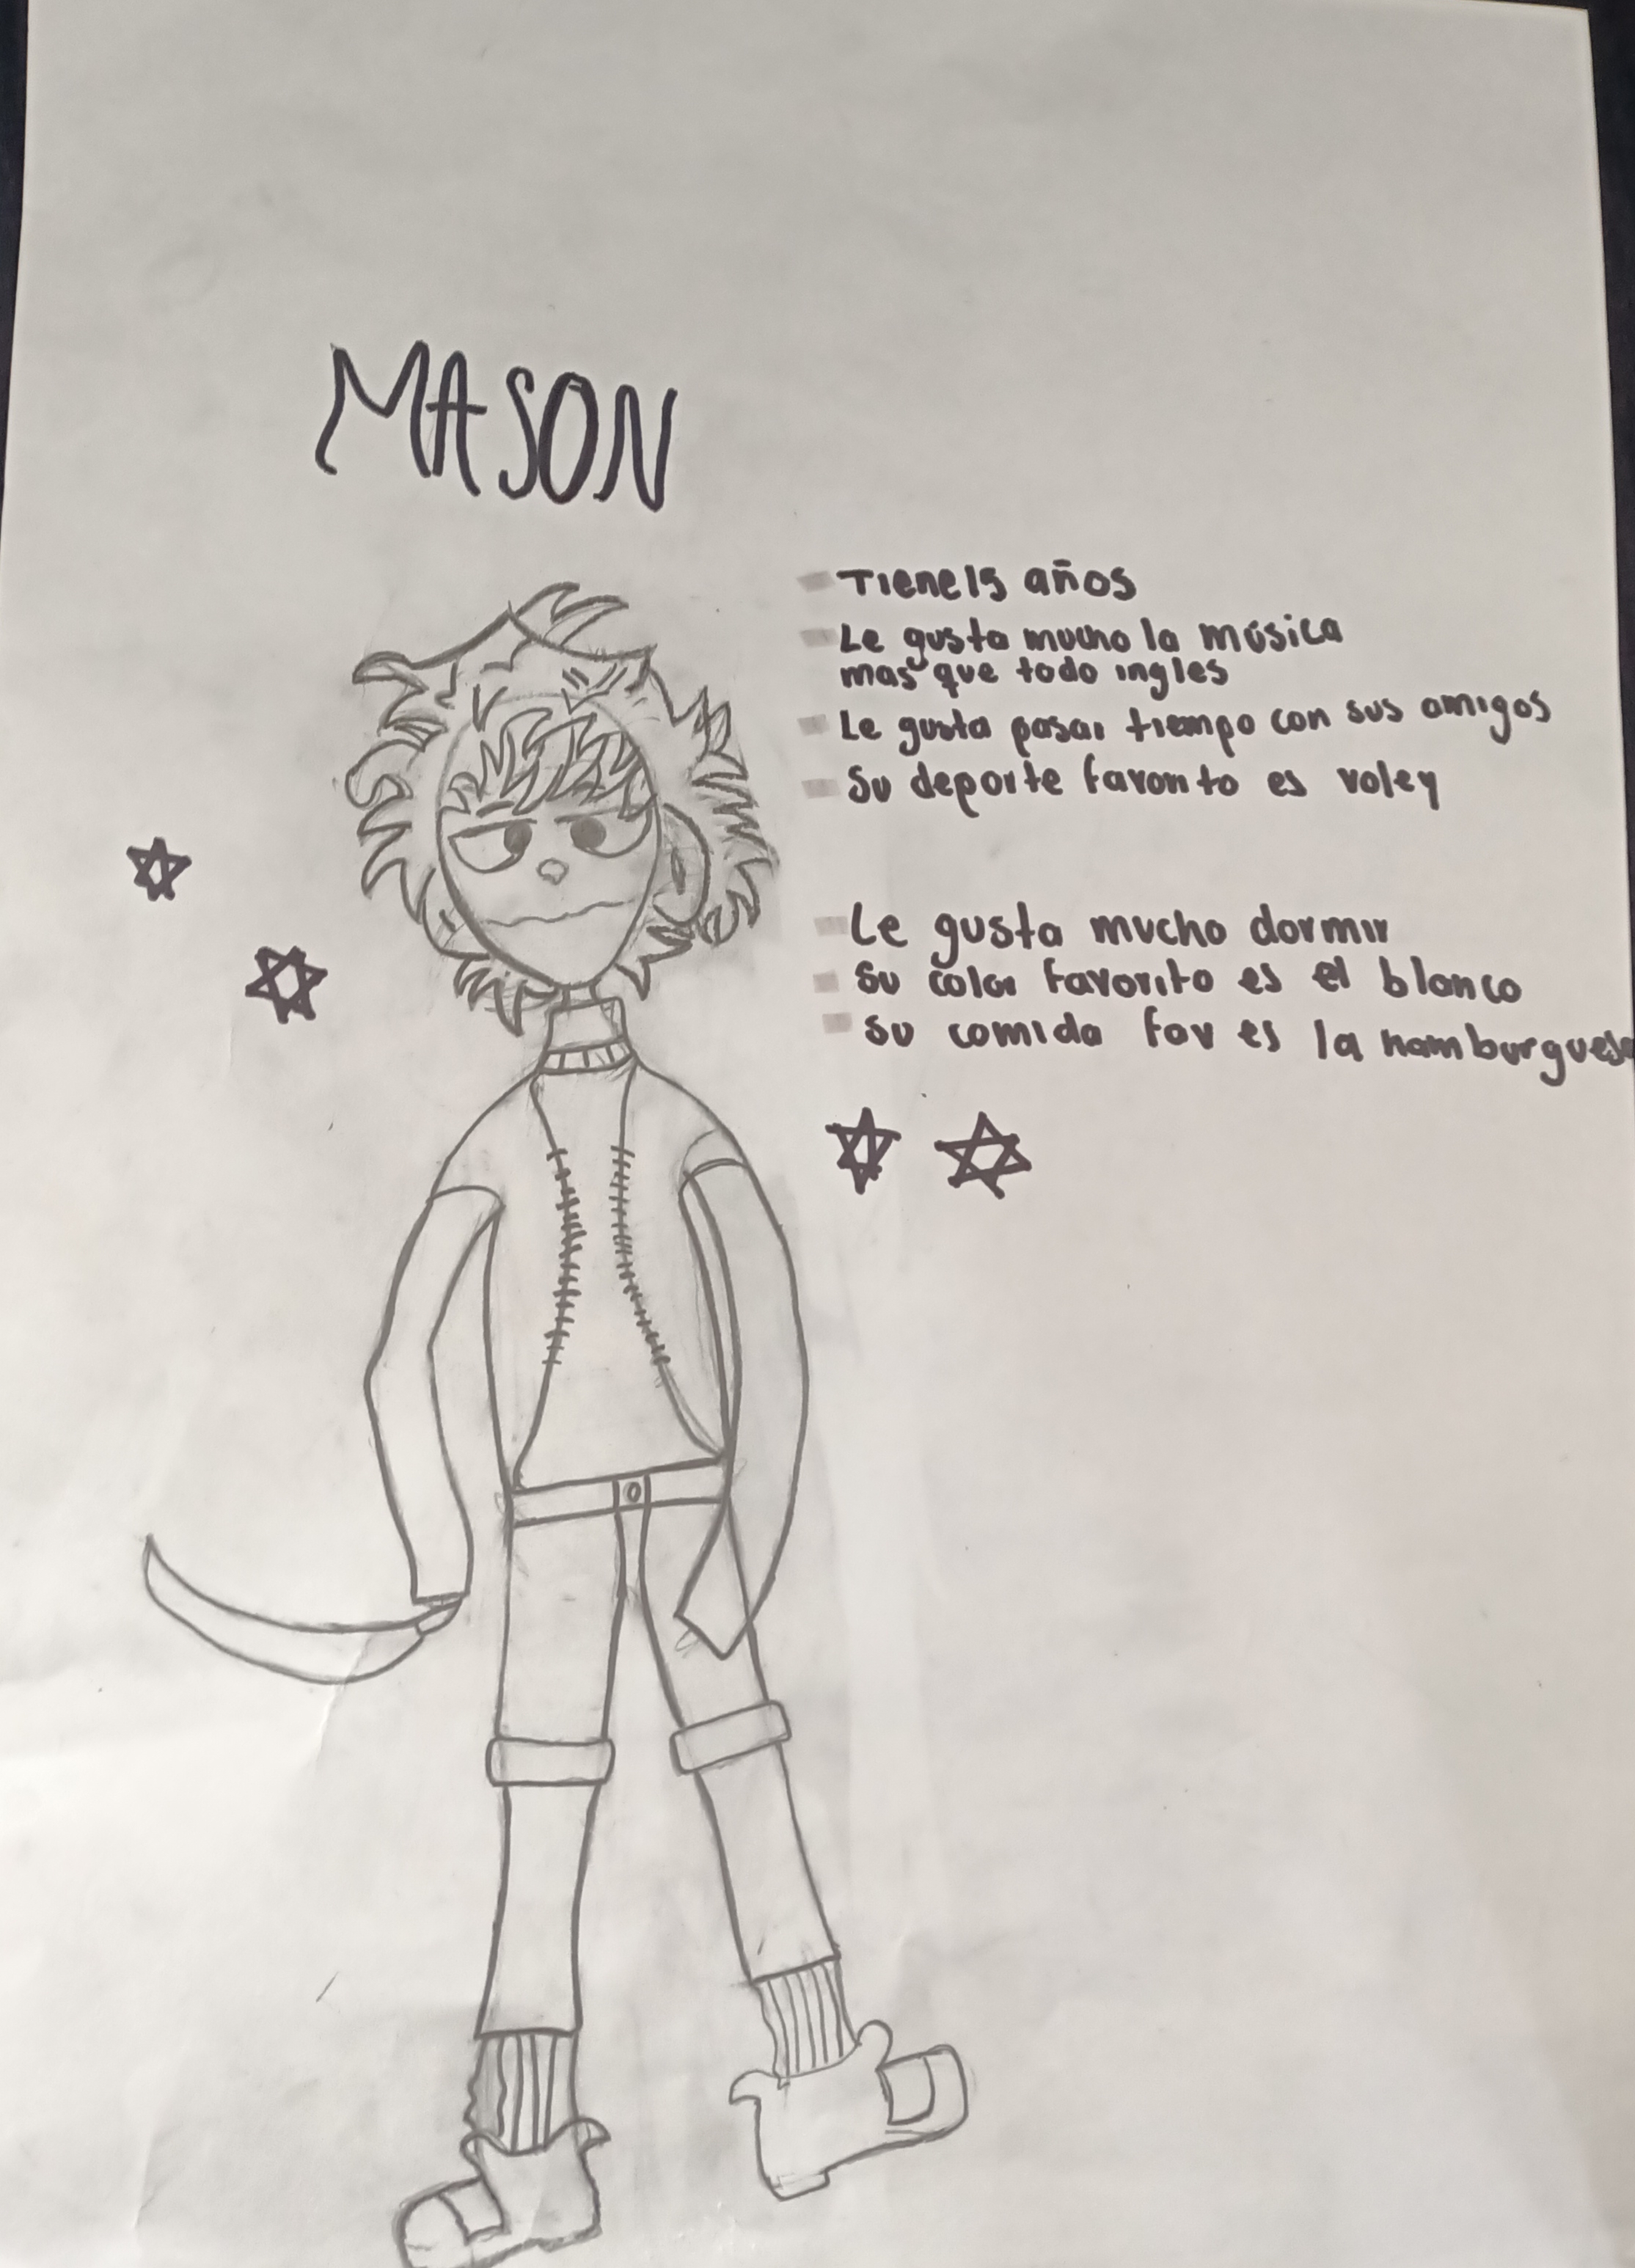 MASON
Tiene 15 años
Le gusta mucho la música
mas que todo ingles
Le gusta pasar tiempo con sus amigos
Su deporte favorito es voley
Le gusta mucho dormir
Su color favorito es el blanco
Su comida fav es la hamburguesa